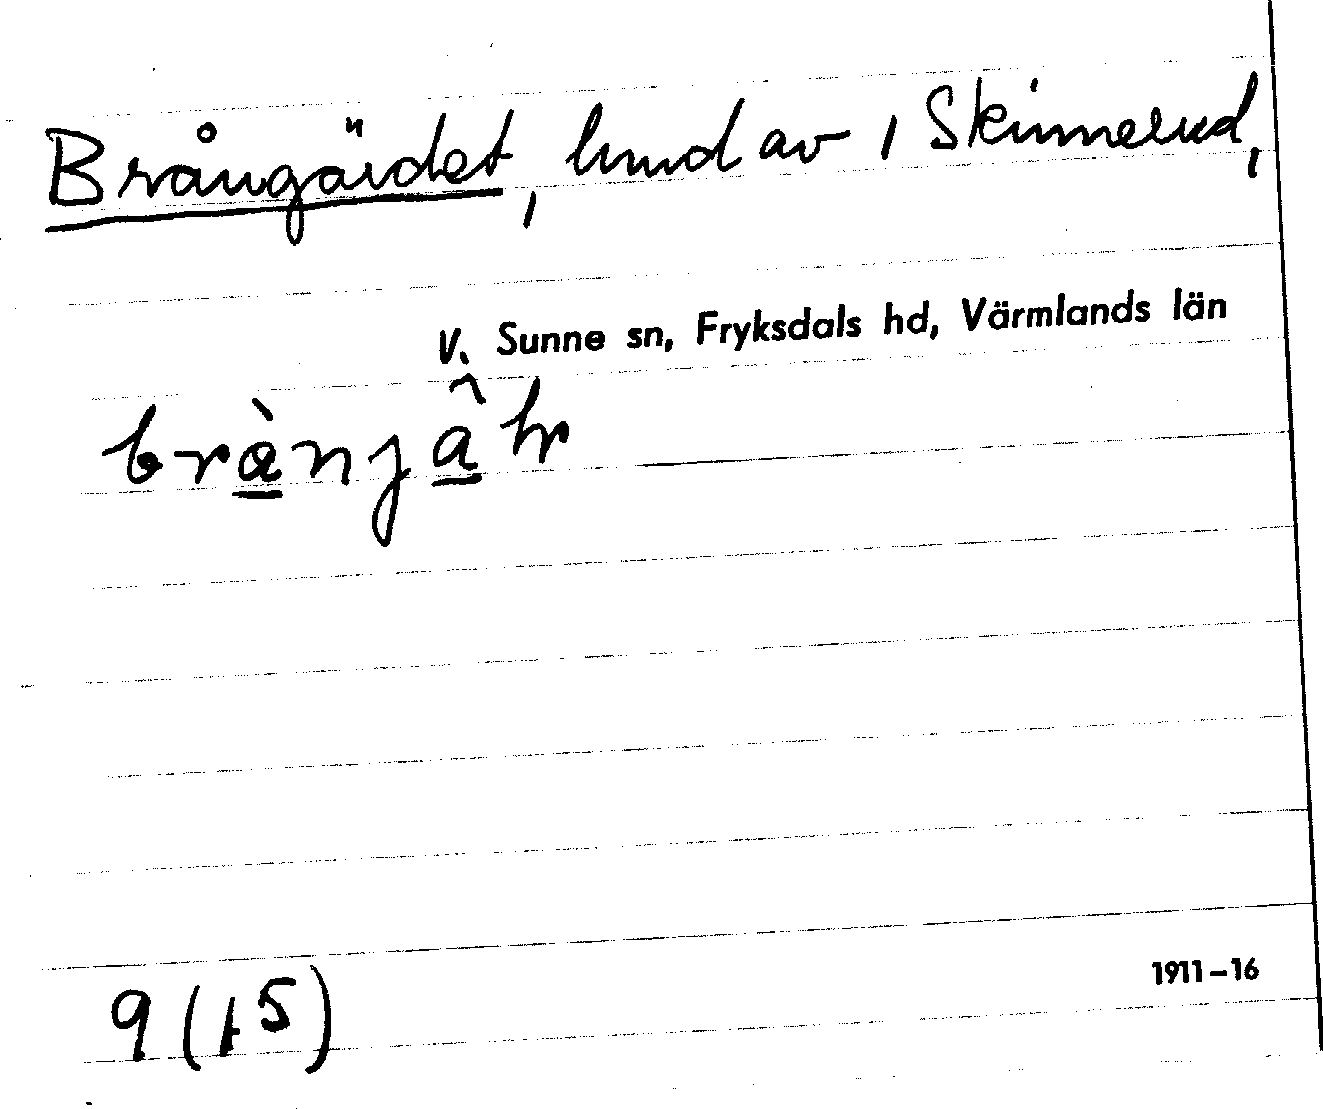 Brångärdet, hmd av i Skinnerud,
V. Sunne sn, Fryksdals hd, Värmlands län
1911-16
9 (15)